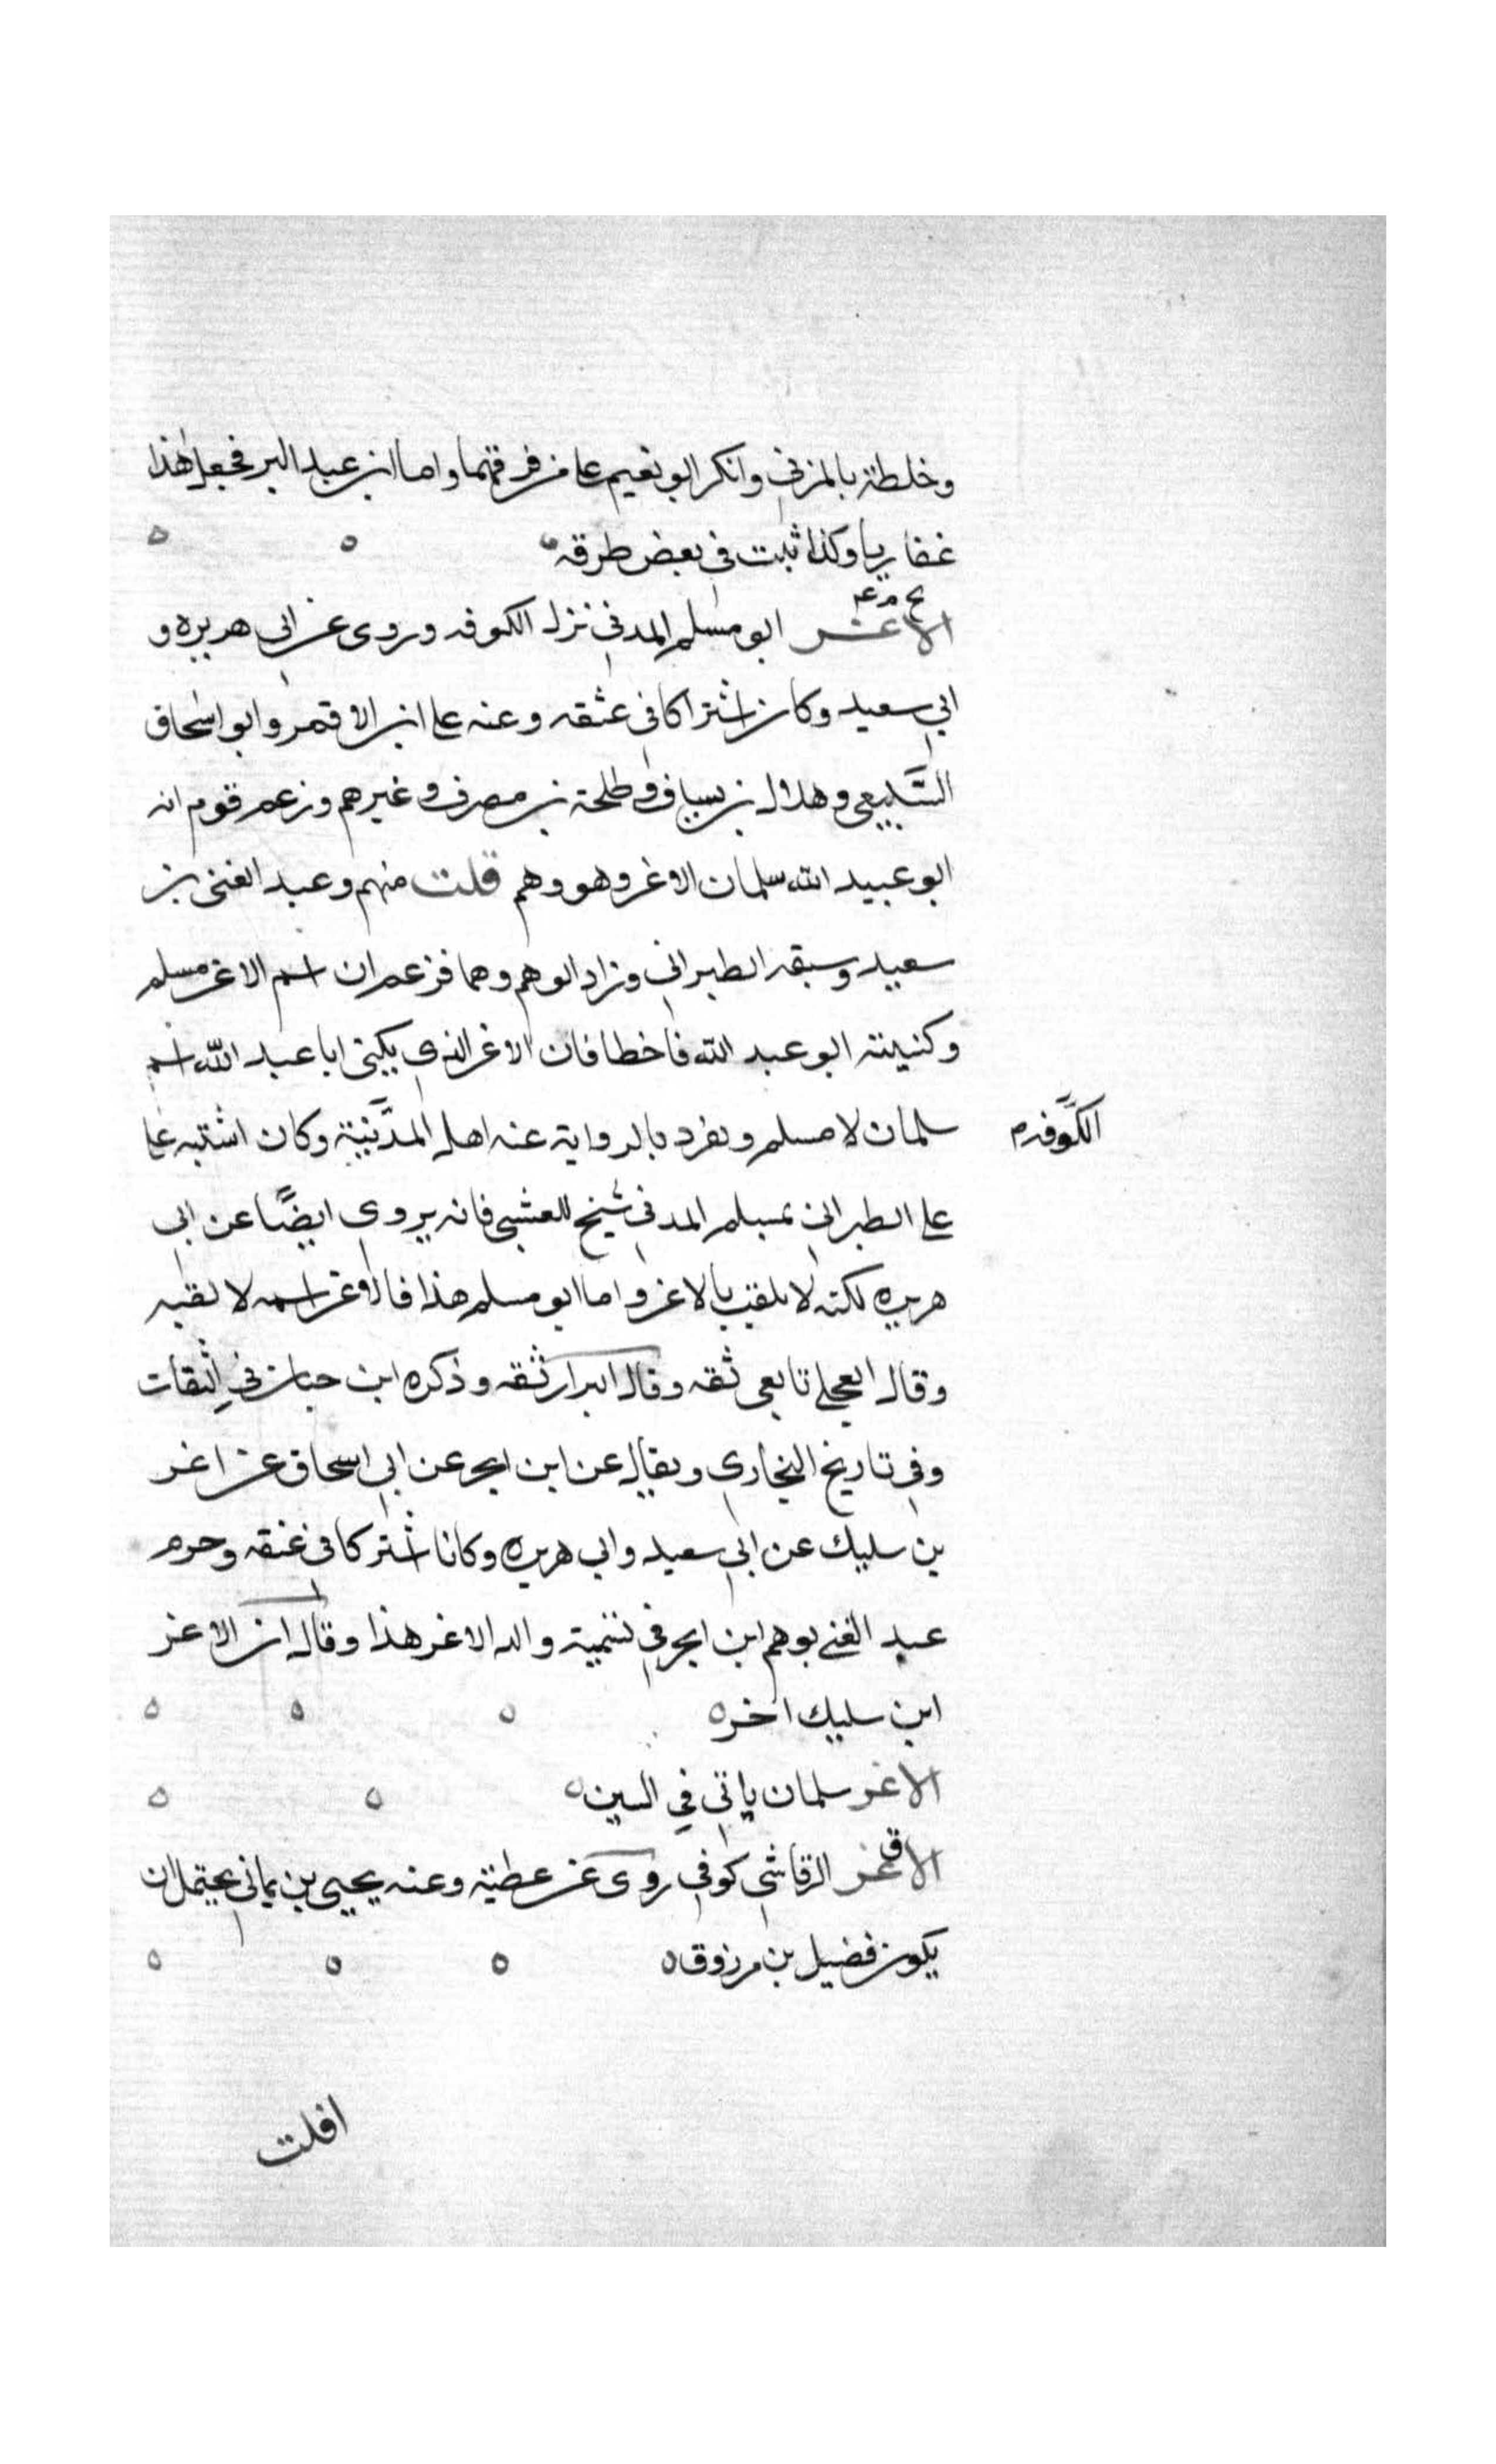 وخلطه بالمزني وانكر ابو نعيم على من فرقهما واما ابن عبد البر فجعل هذا
غفاريا وكذا ثبت في بعض طرقه
بخ م عه
الاغر ابو مسلم المدني نزل الكوفه وروى عن ابي هريره و
ابي سعيد وكان اشتراكا في عتقه وعنه علي ابن الاقمر وابو اسحاق
السَّبيعي وهلال بن يساف وطلحة بن مصرف وغيرهم وزعم قوم انه
ابو عبيد الله سلمان الاغر وهو وهم قلت منهم وعبد الغني بن
سعيد وسبقه الطبراني وزاد الوهم وهما فزعم ان اسم الاغر مسلم
وكنيته ابو عبد الله فاخطا فان الاغر الذي يكنى ابا عبد الله اسم
سلمان لا مسلم وتفرد بالرواية عنه اهل المدينة وكان اشتبه على
الكوفه م
على الطبراني بمسلم المدني شيخ للعشبي فانه يروي ايضًا عن ابي
هريره لكنه لا يلقب بالاغر واما ابو مسلم هذا فالاغر اسمه لا لقبه
وقال العجلي تابعي ثقه وقال البزار ثقه وذكره ابن حبان في الثقات
وفي تاريخ البخاري ويقال عن ابن ابجر عن ابي اسحاق عن اغر
بن سليك عن ابي سعيد وابي هريره وكانا اشتركا في عتقه وجزم
عبد الغني بوهم ابن ابجر في تسمية والد الاغر هذا وقال ان الاغر
ابن سليك اخر
الاغر سلمان ياتي في السين
ق
الاغر الرقاشي كوفي روى عن عطية وعنه يحيى بن يماني يحتمل ان
يكون فضيل بن مرزوق
افلت